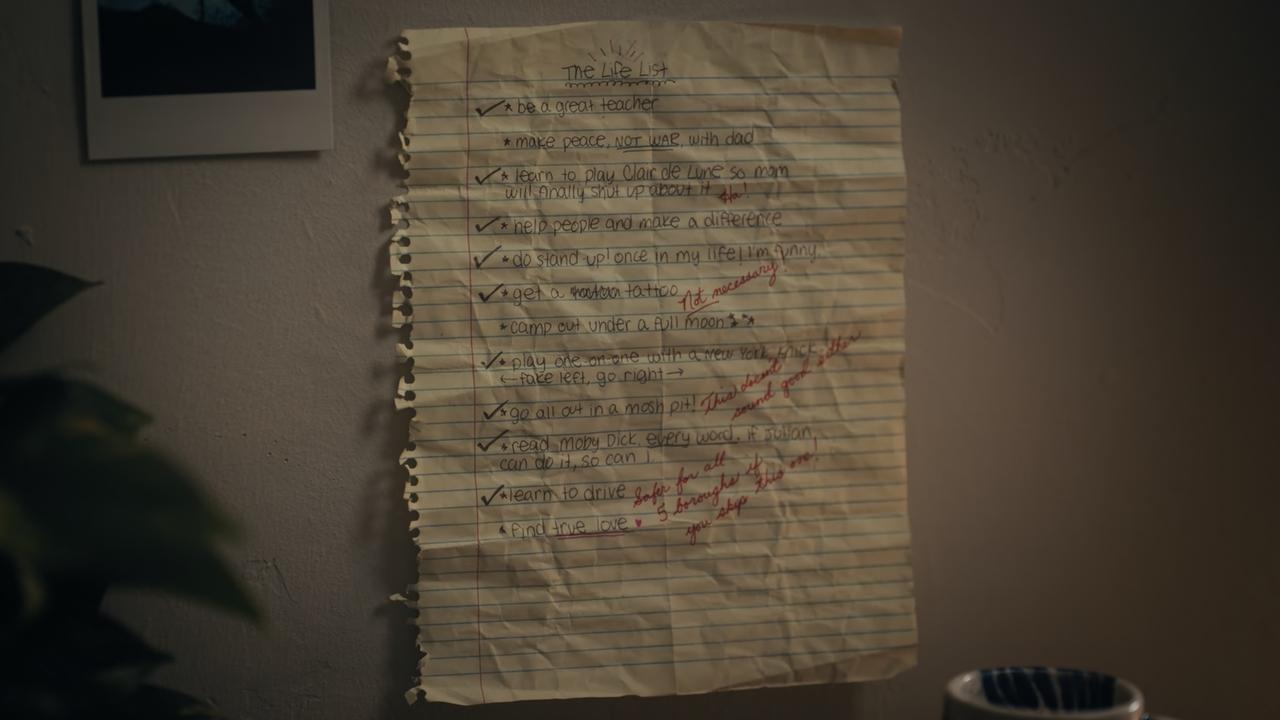 The Life List
✓ * be a great teacher
* make peace, NOT WAR, with dad
✓ * learn to play Clair de Lune so mom
will finally shut up about it Ha!
✓ * help people and make a difference
✓ * do stand up! once in my life! I'm funny!
✓ * get a tattoo Not necessary
* camp out under a full moon
✓ * play one-on-one with a New York Knick
← fake left, go right →
✓ * go all out in a mosh pit! This doesnt
sound good either
✓ * read Moby Dick, every word. If Julian
can do it, so can I
✓ * learn to drive Safer for all
5 boroughs if
you skip this one!
* find true love